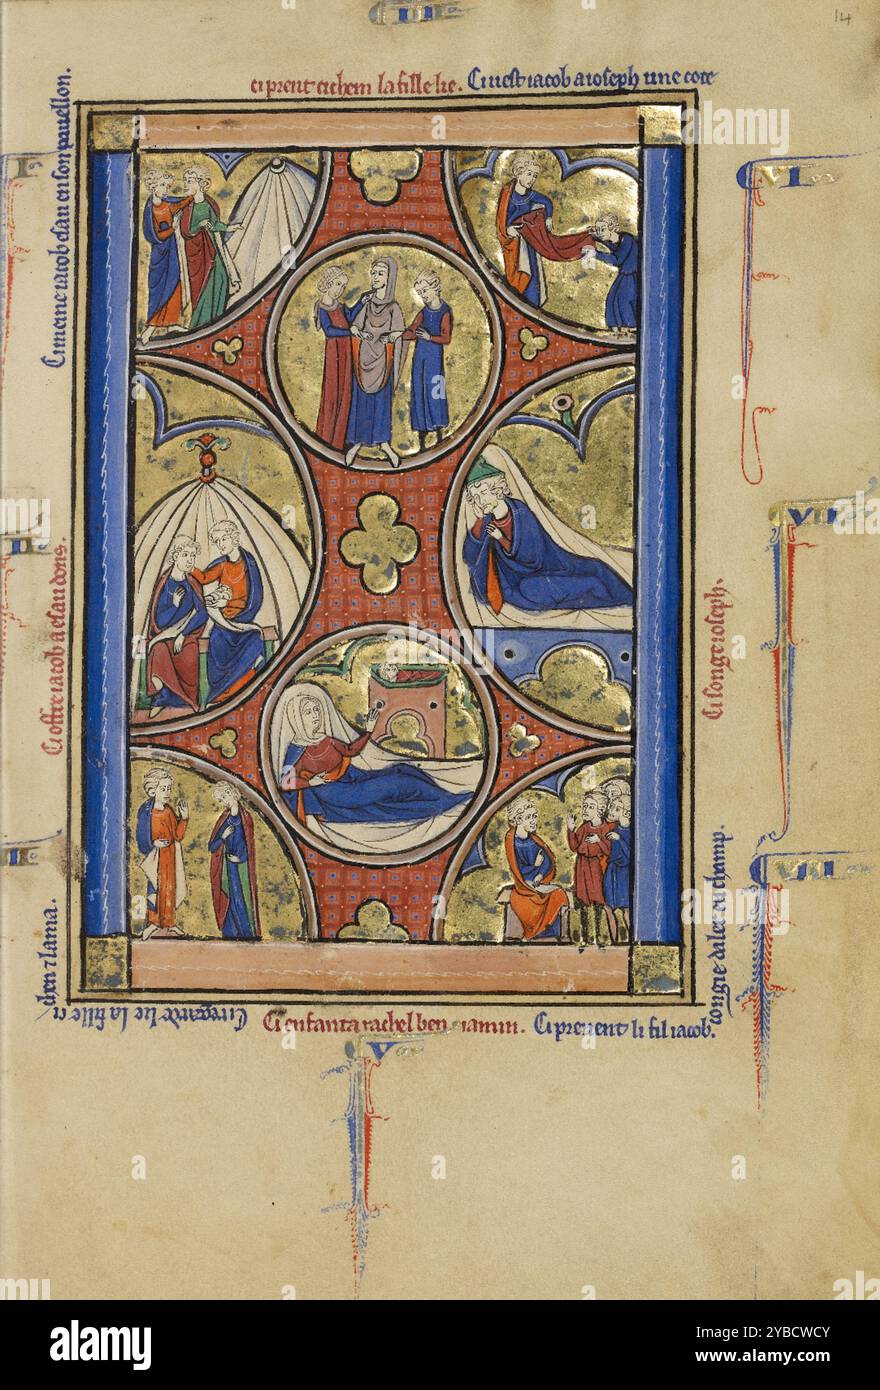 14
III
ci prent cichem la fille lie. Ci uest iacob a ioseph une cote
I
Ci meine iacob esau en son pauellon.
VI
II
Ci offre iacob a esau dons.
VII
Ci songe ioseph.
VIII
Ci regarde lie la fille ci
chen 7 lama.
Ci enfanta rachel ben iamin. Ci prenent li fil iacob.
congie daler eu champ.
V
alamy
Image ID: 2YBCWCY
www.alamy.com